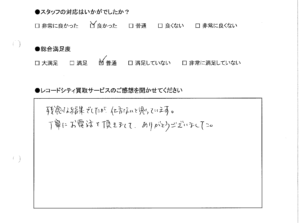 ●スタッフの対応はいかがでしたか？
□ 非常に良かった ☑ 良かった □ 普通 □ 良くない □ 非常に良くない
●総合満足度
□ 大満足 □ 満足 ☑ 普通 □ 満足していない □ 非常に満足していない
●レコードシティ買取サービスのご感想を聞かせてください
残念な結果でしたが、仕方ないと思っています。
丁寧にお電話を頂きまして、ありがとうございました。